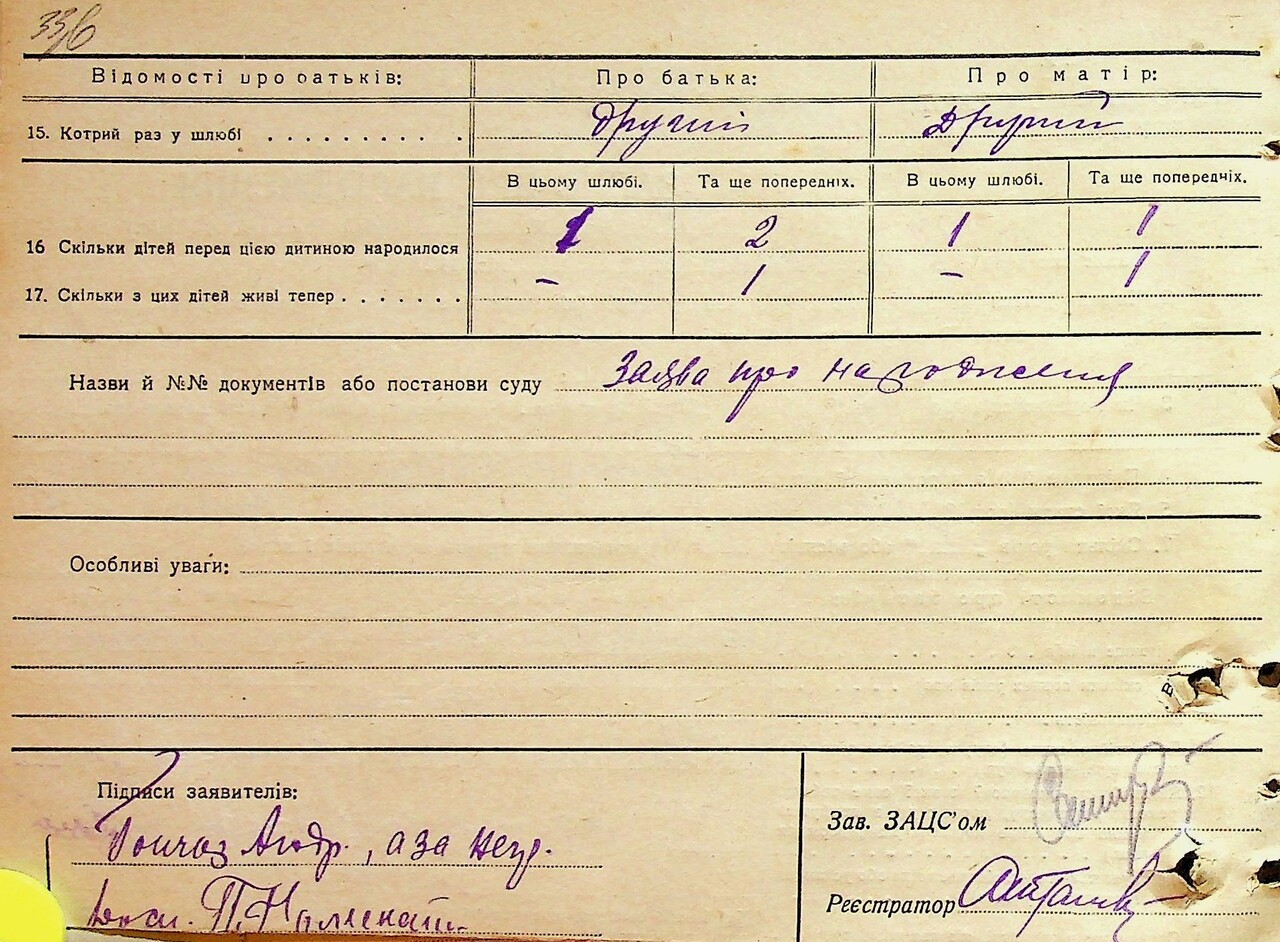 33б
Відомості про батьків: Про батька: Про матір:
15. Котрий раз у шлюбі . . . . . . . . . . другий другий
В цьому шлюбі. Та ще попередніх. В цьому шлюбі. Та ще попередніх.
16 Скільки дітей перед цією дитиною народилося 1 2 1 1
17. Скільки з цих дітей живі тепер . . . . . . . – 1 – 1
Назви й №№ документів або постанови суду Заява про народження
Особливі уваги:
Підписи заявителів:
Гончар Андр., а за негр.
Зав. ЗАЦС'ом
Реєстратор